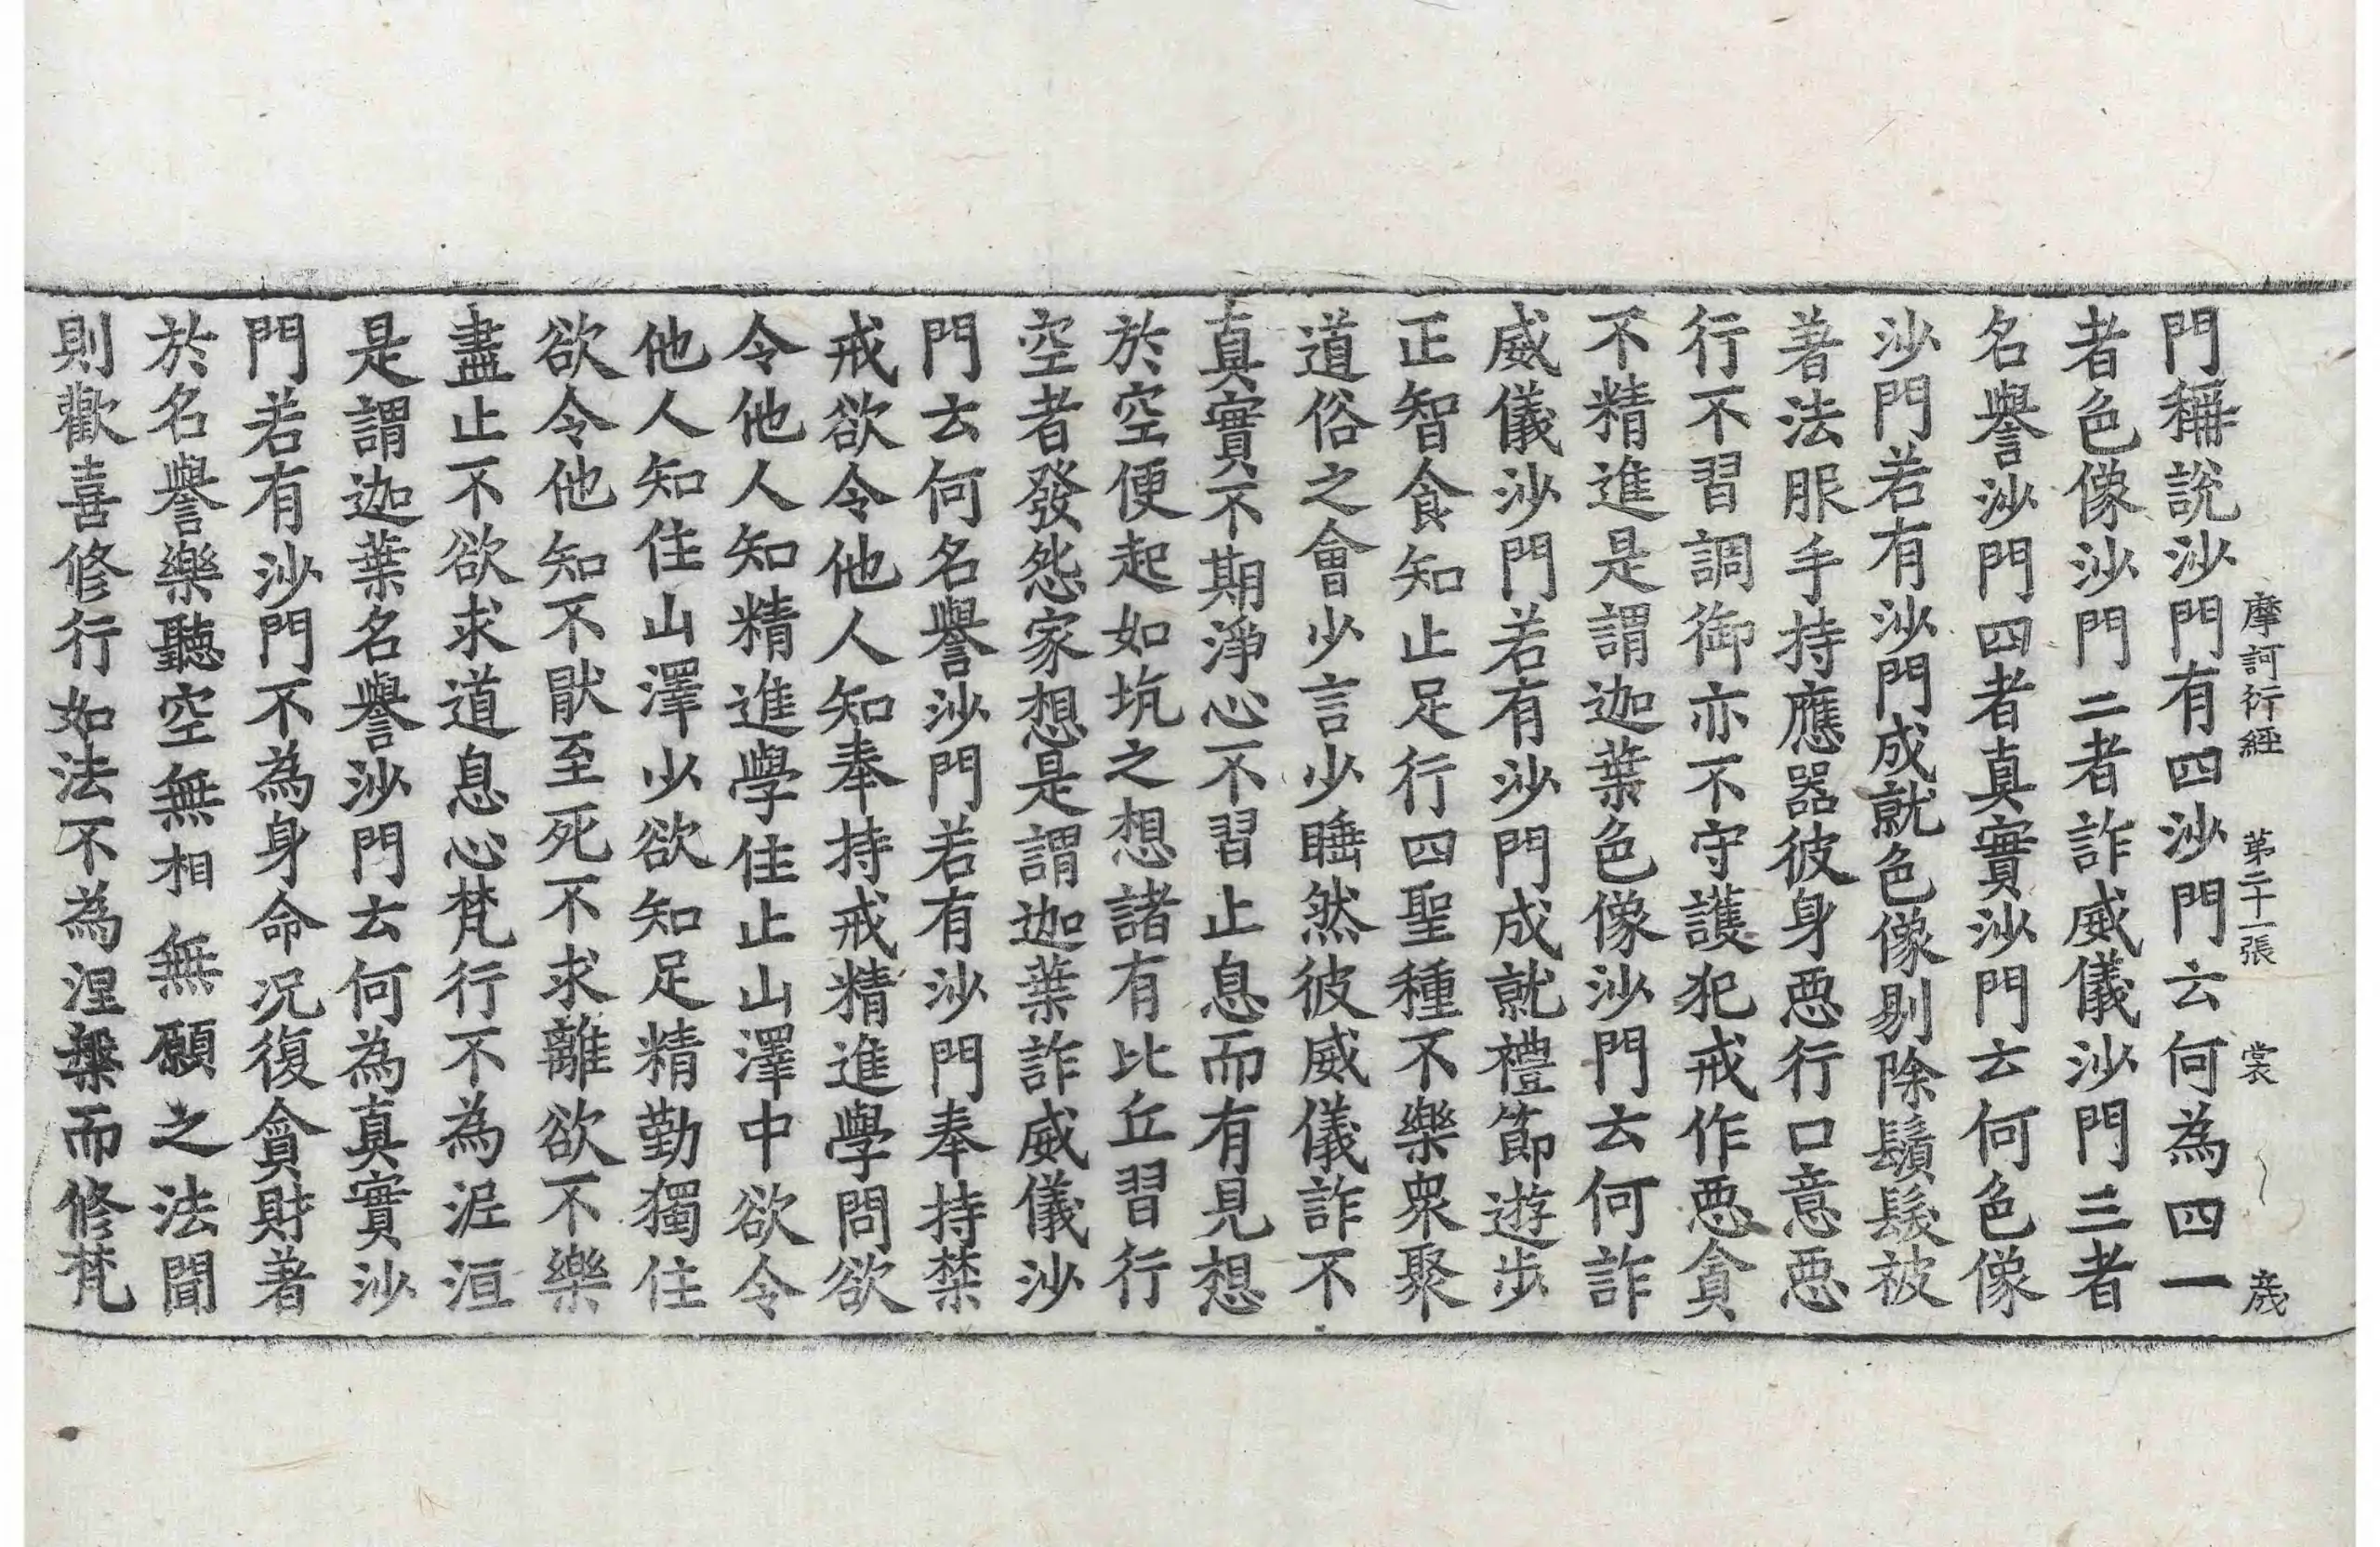 摩訶衍經 第二十一張 裳 歲
門稱說沙門有四沙門云何為四一
者色像沙門二者詐威儀沙門三者
名譽沙門四者真實沙門云何色像
沙門若有沙門成就色像剔除鬚髮被
著法服手持應器彼身惡行口意惡
行不習調御亦不守護犯戒作惡貪
不精進是謂迦葉色像沙門云何詐
威儀沙門若有沙門成就禮節遊步
正智食知止足行四聖種不樂衆聚
道俗之會少言少睡然彼威儀詐不
真實不期淨心不習止息而有見想
於空便起如坑之想諸有比丘習行
空者發怨家想是謂迦葉詐威儀沙
門云何名譽沙門若有沙門奉持禁
戒欲令他人知奉持戒精進學問欲
令他人知精進學住止山澤中欲令
他人知住山澤少欲知足精勤獨住
欲令他知不猒至死不求離欲不樂
盡止不欲求道息心梵行不為泥洹
是謂迦葉名譽沙門云何為真實沙
門若有沙門不為身命況復貪財著
於名譽樂聽空無相無願之法聞
則歡喜修行如法不為涅槃而修梵